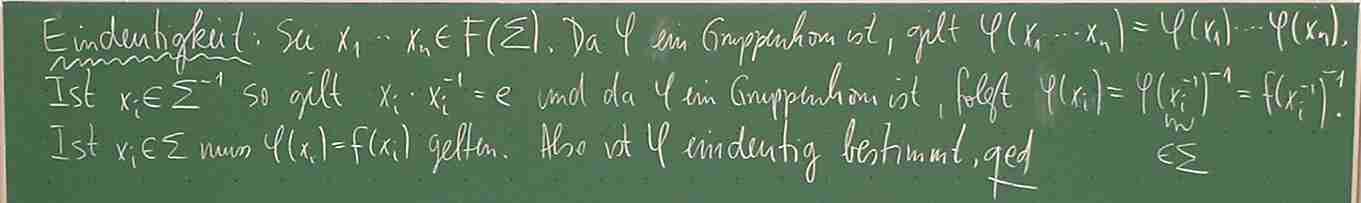 Eindeutigkeit: Sei x₁ ⋯ xₙ ∈ F(Σ). Da φ ein Gruppenhom ist, gilt φ(x₁ ⋯ xₙ) = φ(x₁) ⋯ φ(xₙ).
Ist xᵢ ∈ Σ⁻¹ so gilt xᵢ · xᵢ⁻¹ = e und da φ ein Gruppenhom ist, folgt φ(xᵢ) = φ(xᵢ⁻¹)⁻¹ = f(xᵢ⁻¹)⁻¹.
Ist xᵢ ∈ Σ muss φ(xᵢ) = f(xᵢ) gelten. Also ist φ eindeutig bestimmt, qed
∈ Σ